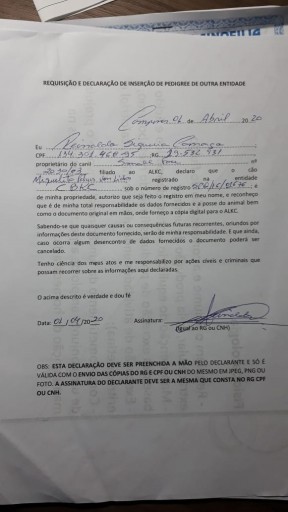 REQUISIÇÃO E DECLARAÇÃO DE INSERÇÃO DE PEDIGREE DE OUTRA ENTIDADE
de Abril 20 20
Eu
CPF RG
proprietário do canil nº
filiado ao ALKC, declaro que o cão
registrado na entidade
CBKC sob o número de registro e
de minha propriedade, autorizo que seja feito o registro em meu nome, e reconheço
que é de minha total responsabilidade os dados fornecidos e a posse do animal bem
como o documento original em mãos, onde forneço a cópia digital para o ALKC.
Sabendo-se que quaisquer causas ou consequências futuras recorrentes, oriundos por
informações deste documento fornecido, serão de minha responsabilidade. E que ainda,
caso ocorra algum desencontro de dados fornecidos o documento poderá ser
cancelado.
Tenho ciência dos meus atos e me responsabilizo por ações cíveis e criminais que
possam recorrer sobre as informações aqui declaradas.
O acima descrito é verdade e dou fé
Data: 01/04/2020 Assinatura:
(Igual ao RG ou CNH)
OBS: ESTA DECLARAÇÃO DEVE SER PREENCHIDA A MÃO PELO DECLARANTE E SÓ É
VÁLIDA COM O ENVIO DAS CÓPIAS DO RG E CPF OU CNH DO MESMO EM JPEG, PNG OU
FOTO. A ASSINATURA DO DECLARANTE DEVE SER A MESMA QUE CONSTA NO RG CPF
OU CNH.